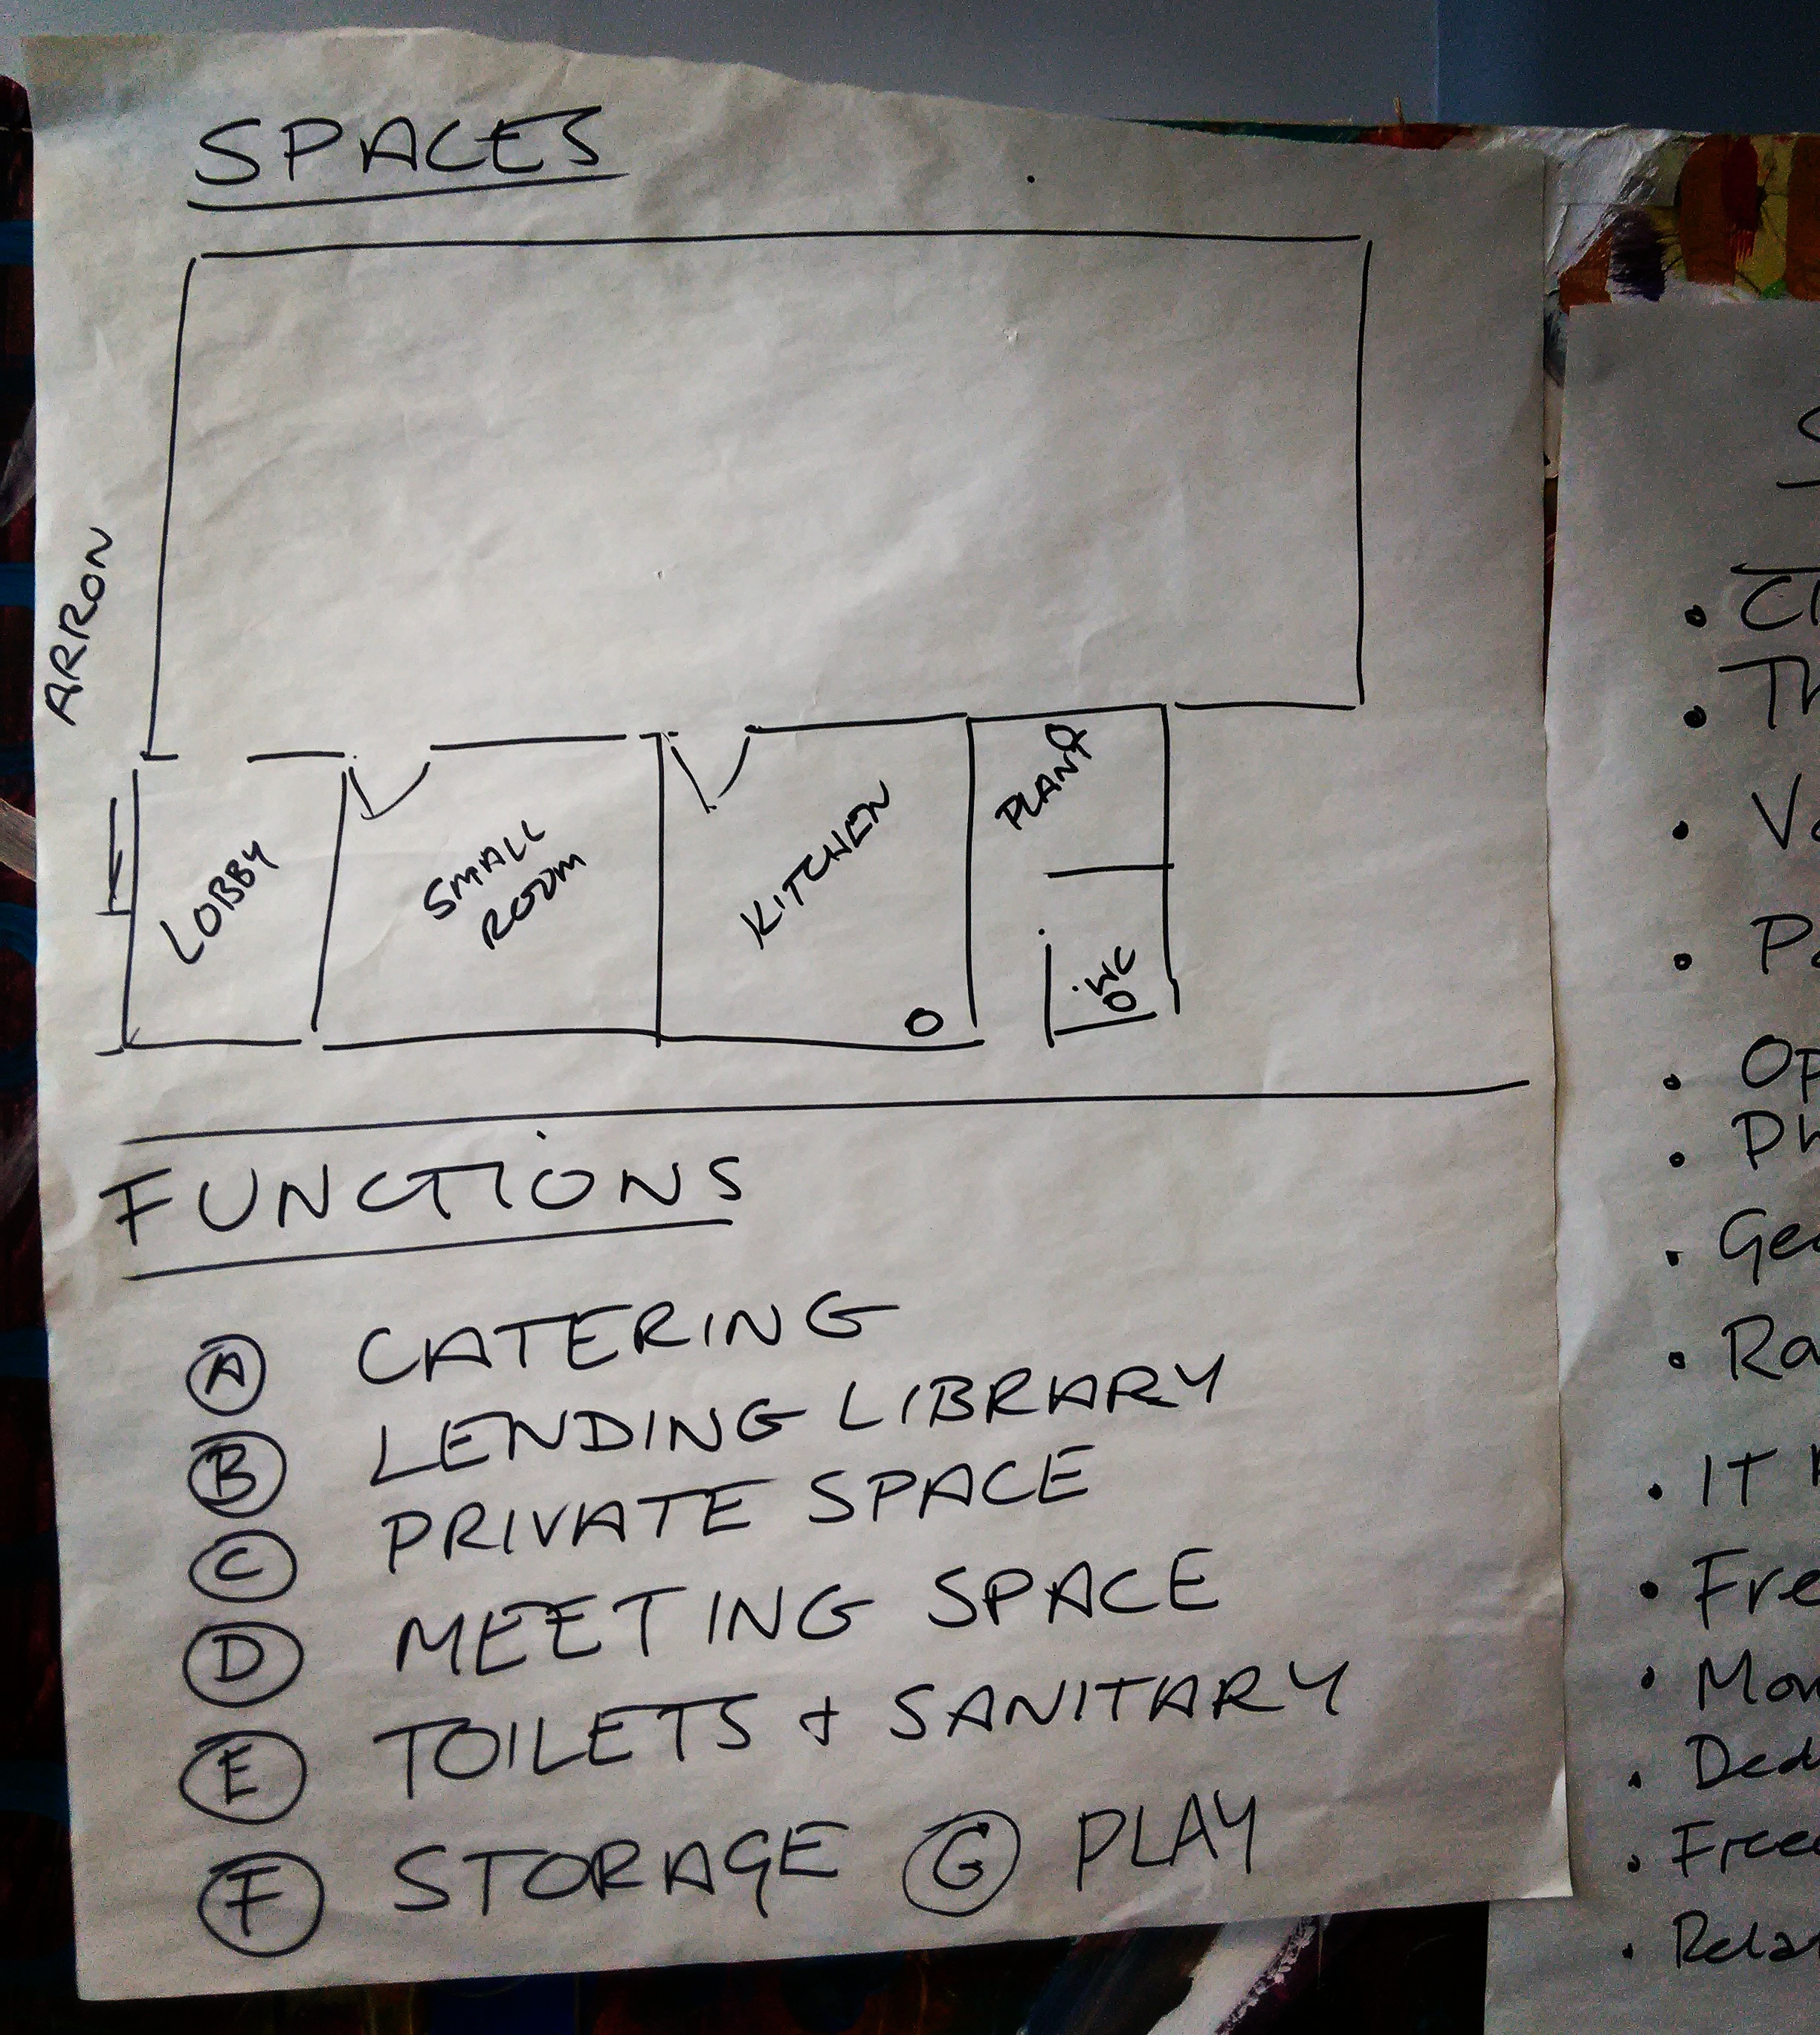 SPACES
ARRON
LOBBY
SMALL
ROOM
KITCHEN
PLANT
WC
FUNCTIONS
A CATERING
B LENDING LIBRARY
C PRIVATE SPACE
D MEETING SPACE
E TOILETS + SANITARY
F STORAGE G PLAY
• Th
• Op
• Ph
• Ra
• IT
• Fre
• Ded
• Free
• Rela